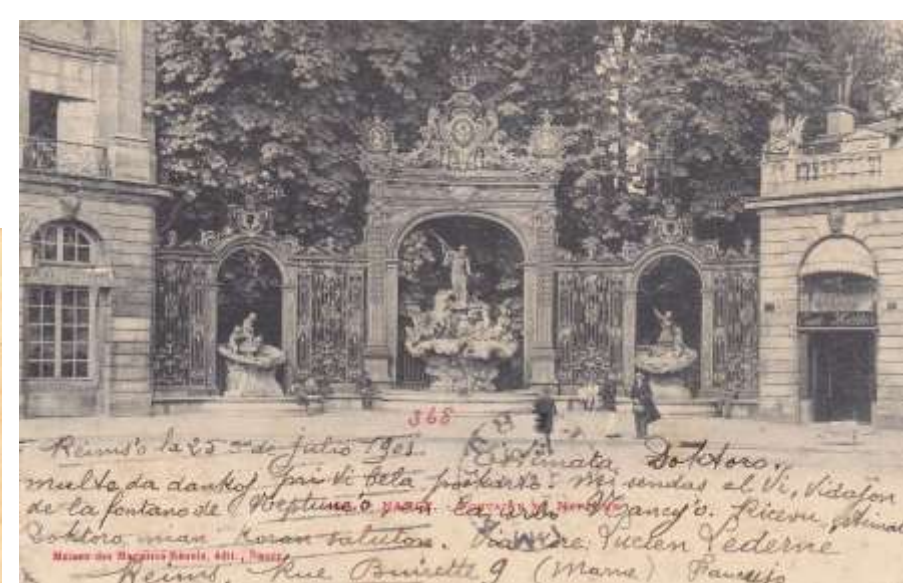 368
Reims'o la 25 an de julio 1905. Estimata Doktoro,
multe da dankoj pri vi bela poŝkarto. Mi sendas al Vi, Vidaĵon
de la fontano de Neptune'o en la urbo Nancy'o. Ricevu, estimata
Doktoro, mian koran saluton. Lucien Lederne
Maison des Magasins Réunis, édit., Nancy
Reims, Rue Buirette 9 (Marne) Francujo